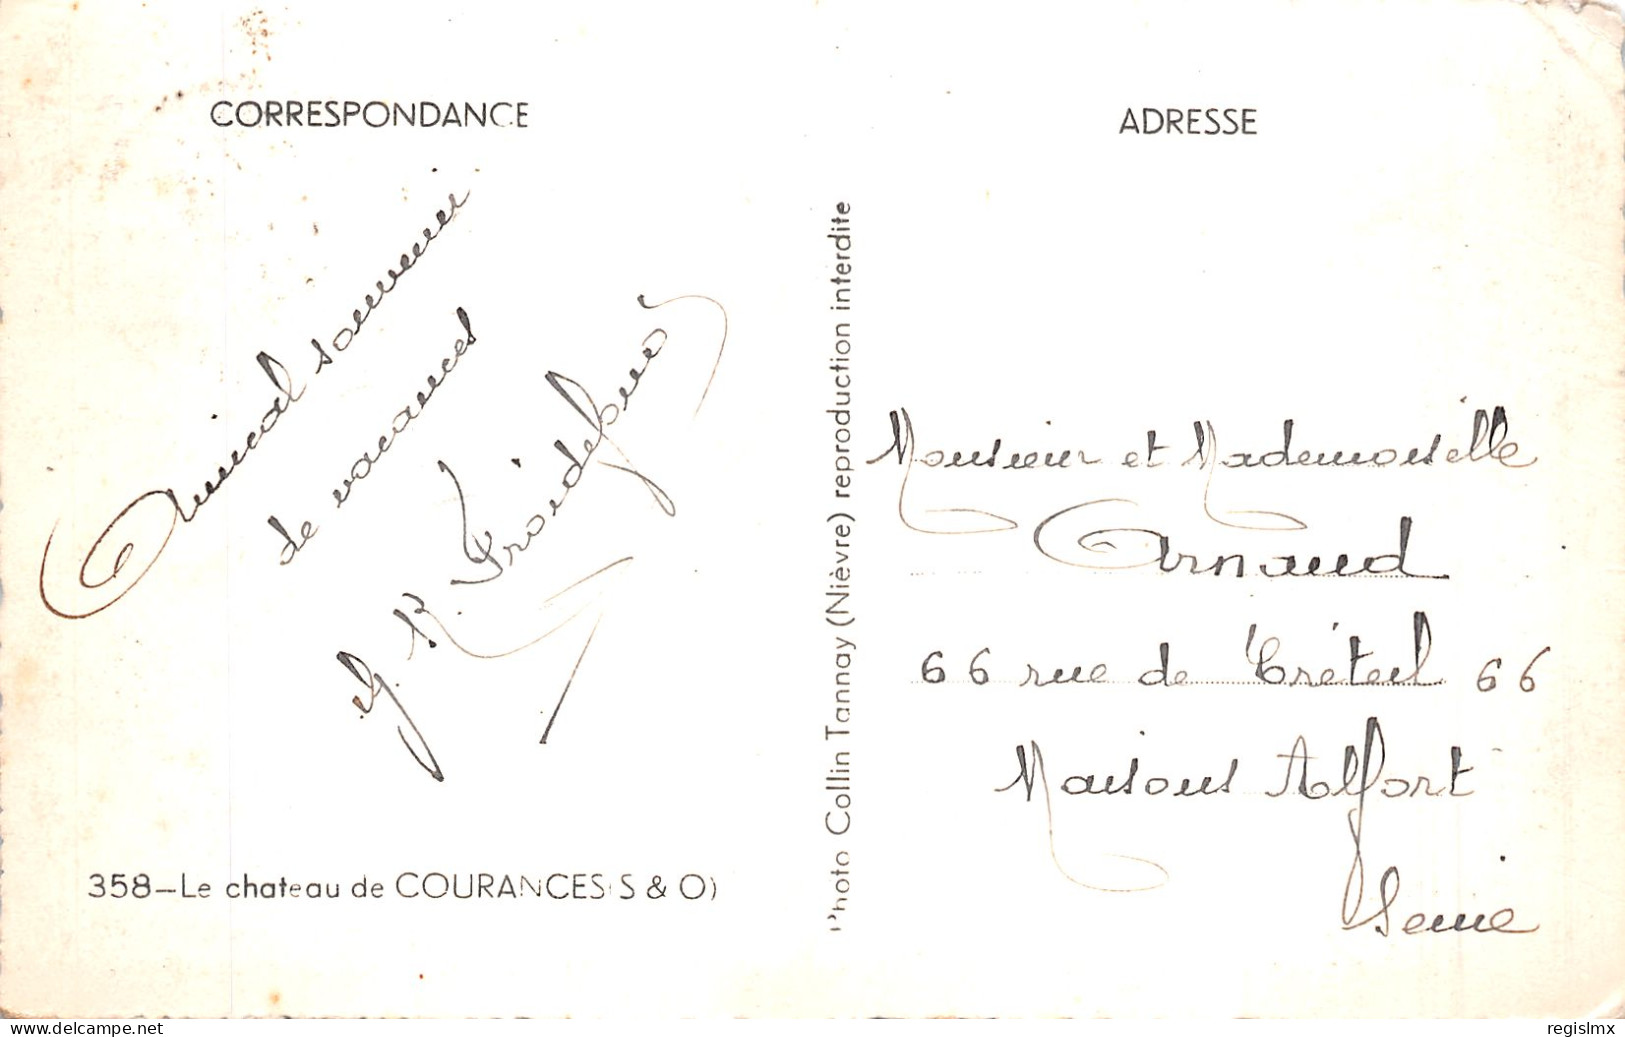 CORRESPONDANCE
Amical souvenir
de vacances
358-Le chateau de COURANCES (S & O)
Photo Collin Tannay (Nièvre) reproduction interdite
ADRESSE
Monsieur et Mademoiselle
Arnaud
66 rue de Créteil 66
Maisons Alfort
Seine
www.delcampe.net
regislmx